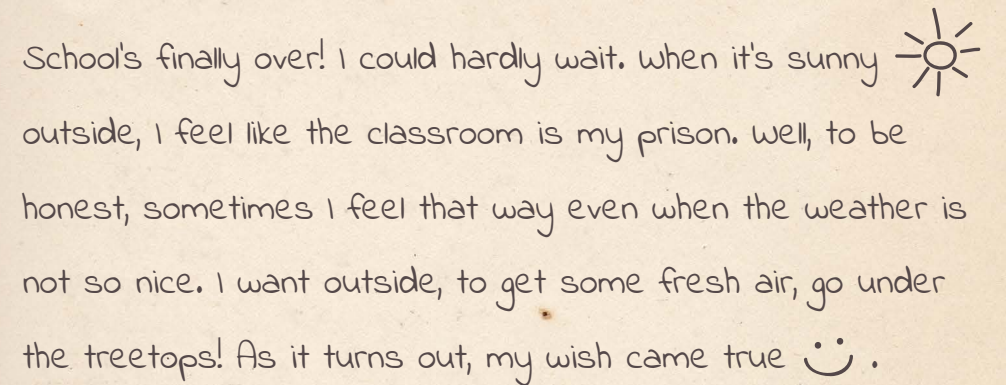 School's finally over! I could hardly wait. When it's sunny
outside, I feel like the classroom is my prison. Well, to be
honest, sometimes I feel that way even when the weather is
not so nice. I want outside, to get some fresh air, go under
the treetops! As it turns out, my wish came true .